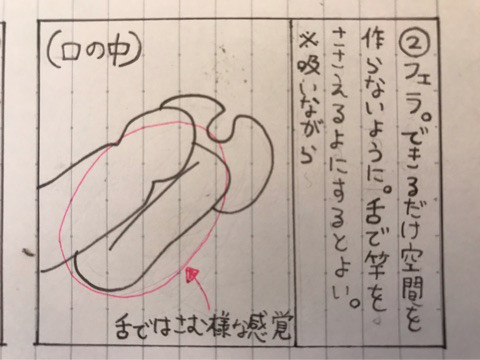 ②フェラ。できるだけ空間を
作らないように。舌で竿を。
ささえるよにするとよい。
※吸いながら
(口の中)
舌ではさむ様な感覚